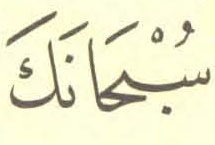 سُبْحَانَكَ